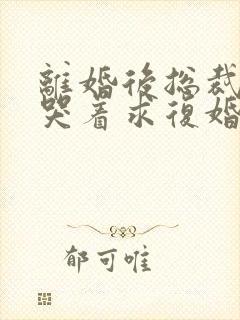 離婚後総裁
哭着求復婚
郁可唯